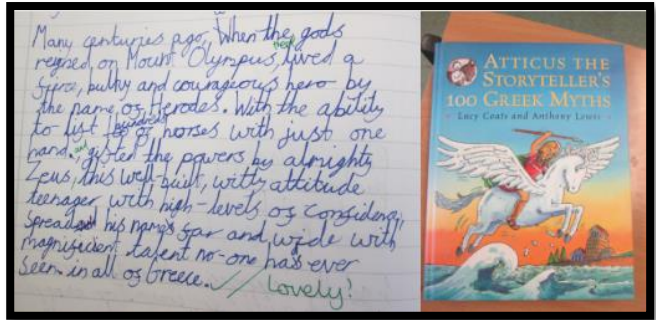 Many centuries ago, When the gods
reigned on Mount Olympus, lived a
fierce, bulky and courageous hero by
the name of Herodes. With the ability
to lift of horses with just one
hand, and gifted the powers by almighty
Zeus, this well-built, witty attitude
teenager with high-levels of confidence,
spread his name far and wide with
magnificient talent no-one has ever
seen in all of Greece.
Lovely!
ATTICUS THE
STORYTELLER'S
100 GREEK MYTHS
Lucy Coats and Anthony Lewis